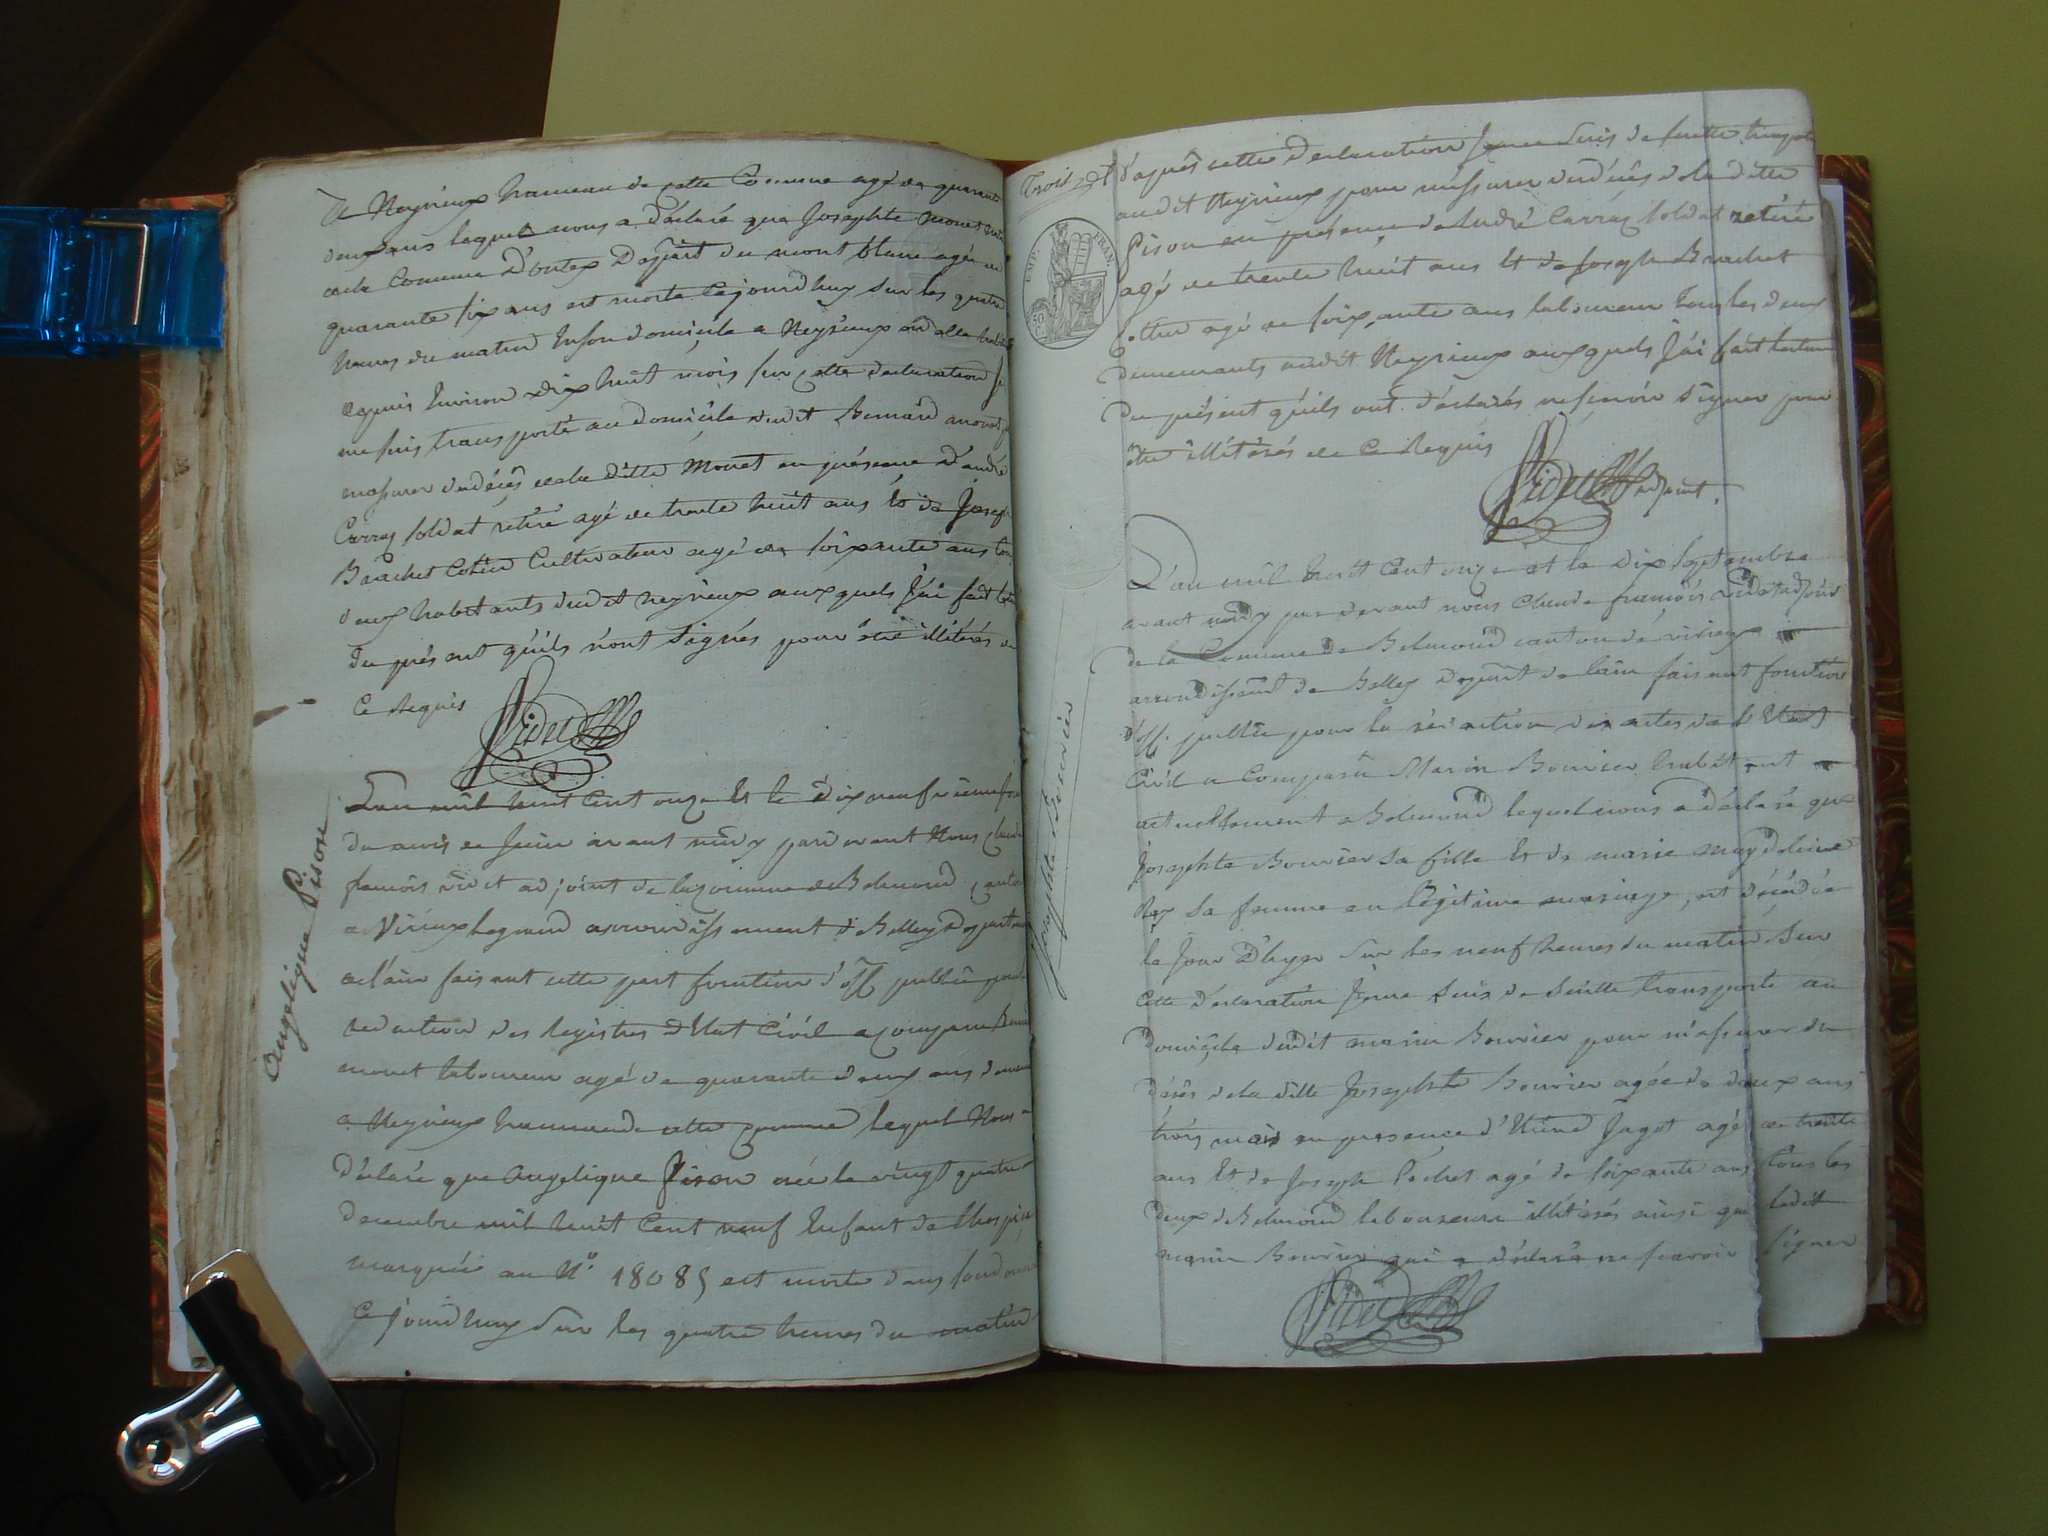 A Neyrieux hameau de cette Commune agé de quarante
deux ans lequel nous a déclaré que Josephte Monet
de la Commune D'ontex Depart du mont blanc agée de
quarante six ans est morte Cejourdhuy Sur les quatre
heures du matin En son domicile a Neyrieux ou elle
depuis Environ dix huit mois sur cette declaration
me suis transporté au domicile dudit Bernard monet
massurer du décès de la ditte Monet en présence D'andré
Carraz soldat rétiré agé de trente huit ans Et de Joseph
Brachet Cotin Cultivateur agé de soixante ans
deux habitants dudit neyrieux auxquels J'ai fait
du présent qu'ils n'ont Signés pour être illitérés de
Ce Requis
Videt
Angelique Pison
L'an mil huit Cent onze Et le dix neufvieme
du mois de Juin avant midy pardevant Nous
francois videt adjoint de la Commune de Belmond
Virieux le grand arrondissement de Belley
de l'ain faisant cette part fonction d'off. public pour
redaction des Registres d'Etat Civil a comparu
monet laboureur agé de quarante deux ans
a Neyrieux hameau de cette commune lequel Nous a
Déclaré que Angelique Pison née le vingt quatre
decembre mil huit Cent neuf Enfant de l'hospice
marquée au N° 18085 est morte dans son domicile
Ce jourdhuy Sur les quatre heures du matin
Trois
EMP. FRAN.
50
d'après cette declaration Je me suis de suitte transporté
audit Neyrieux pour m'assurer du décès de la ditte
Pison en présence de André Carraz soldat retiré
agé de trente huit ans Et de Joseph Brachet
Cottin agé de soixante ans laboureur tous les deux
demeurants audit Neyrieux auxquels J'ai fait lecture
Du présent qu'ils ont déclarés ne savoir Signer pour
être illitérés de Ce Requis
Videt adjoint.
Josephte Bouvier
L'an mil huit Cent onze et le dix Septembre
avant midy par devant nous Claude francois Videt adjoint
de la Commune de Belmond canton de virieux
arrondissement de Belley Depart de l'ain faisant fonction
d'off. public pour la rédaction des actes de l'Etat
Civil a Comparu Marin Bouvier habitant
actuellement a Belmond lequel nous a déclaré que
Josephte Bouvier sa fille Et de marie magdelaine
Rey sa femme en légitime mariage, est décédée
le Jour D'hyer Sur les neuf heures du matin Sur
Cette déclaration Je me suis de Suitte transporté au
Domicile dudit marin Bouvier pour m'assurer du
décès de la ditte Josephte Bouvier agée de deux ans
trois mois en presence d' Jagot agé de trente
ans Et de Joseph Pochet agé de soixante ans tous les
deux de Belmond laboureurs illitérés ainsi que ledit
marin Bouvier qui a déclaré ne scavoir Signer
Videt